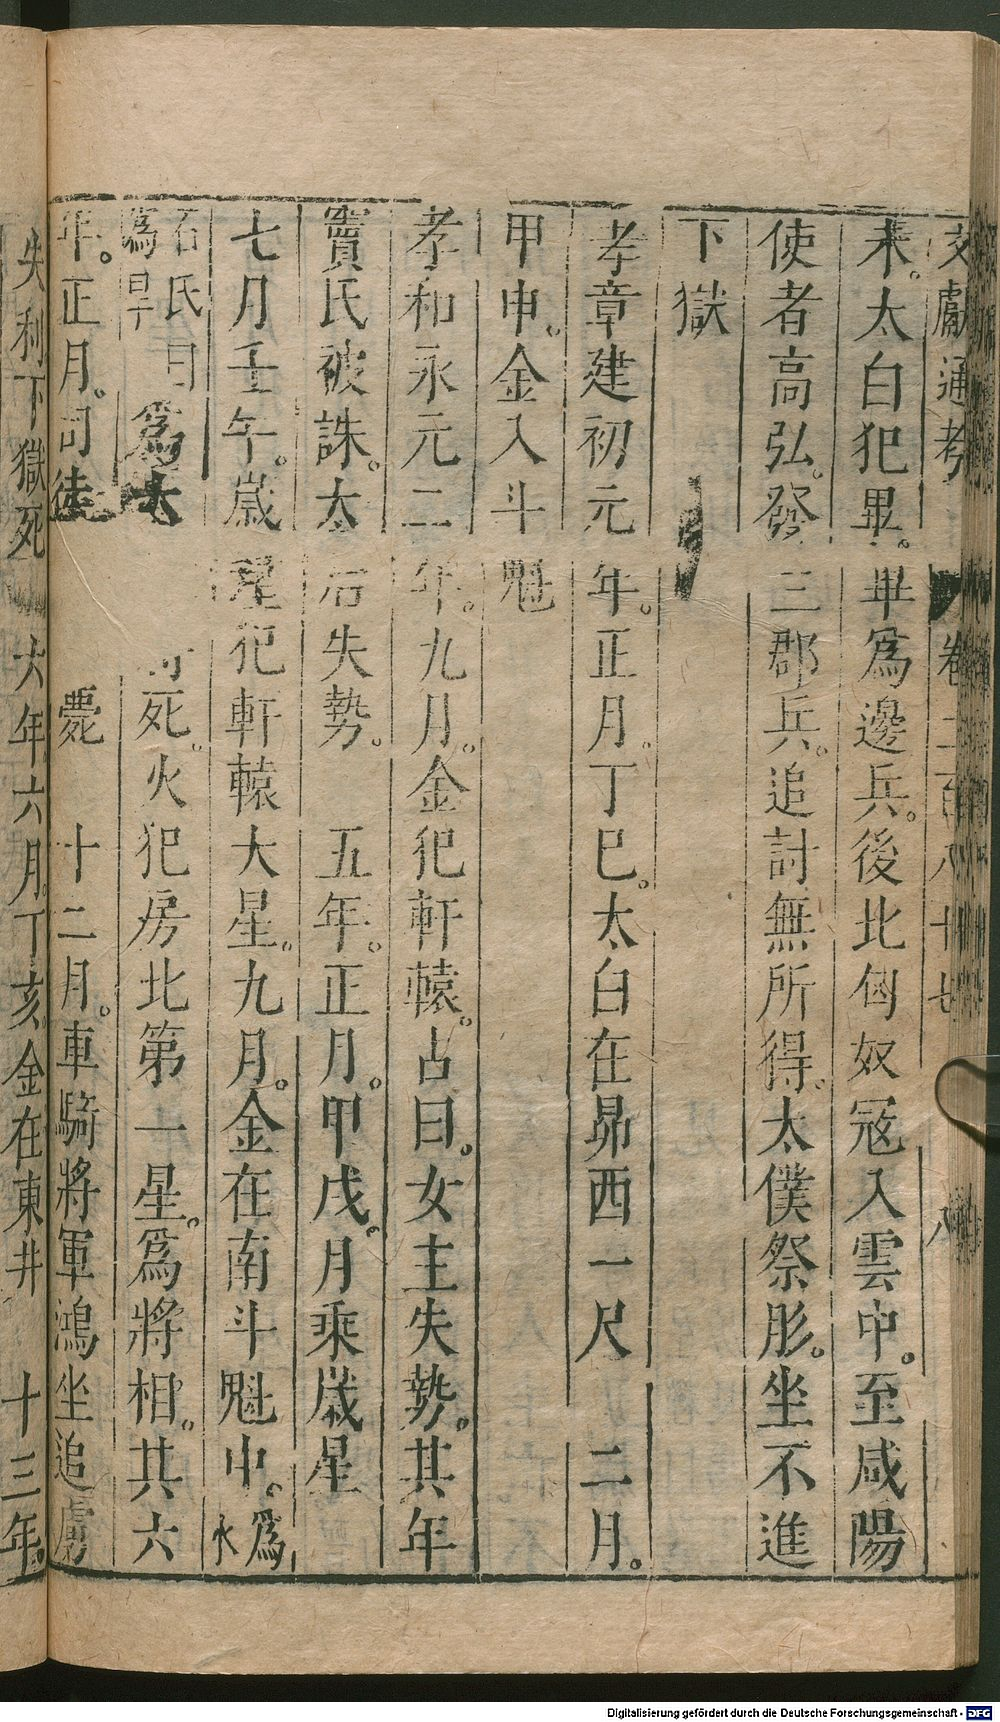 文獻通考 卷二百八十七 八
未。太白犯畢。畢爲邊兵。後北匈奴冦入雲中。至咸陽
使者高弘。發三郡兵。追討無所得。太僕祭肜。坐不進
下獄
孝章建初元年。正月。丁巳。太白在昴西一尺 二月。
甲申。金入斗魁
孝和永元二年。九月。金犯軒轅。占曰。女主失勢。其年
竇氏被誅。太后失勢。 五年。正月。甲戌。月乘歲星
七月壬午。歲星犯軒轅大星。九月。金在南斗魁中。爲水
石氏曰爲旱 爲大 死。火犯房北第一星。爲將相。其六
年。正月。司徒 薨 十二月。車騎將軍鴻坐追虜
失利下獄死 六年。六月。丁亥。金在東井 十三年。
Digitalisierung gefördert durch die Deutsche Forschungsgemeinschaft - DFG